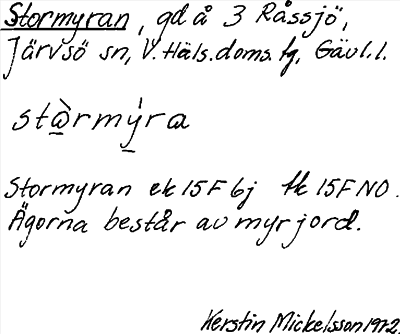 Stormyran, gd å 3 Råssjö,
Järvsö sn, V. Häls. doms. tg, Gävl. l.
stàrmýra
Stormyran ek 15F 6j tk 15F NO.
Ägorna består av myrjord.
Kerstin Mickelsson 1972.